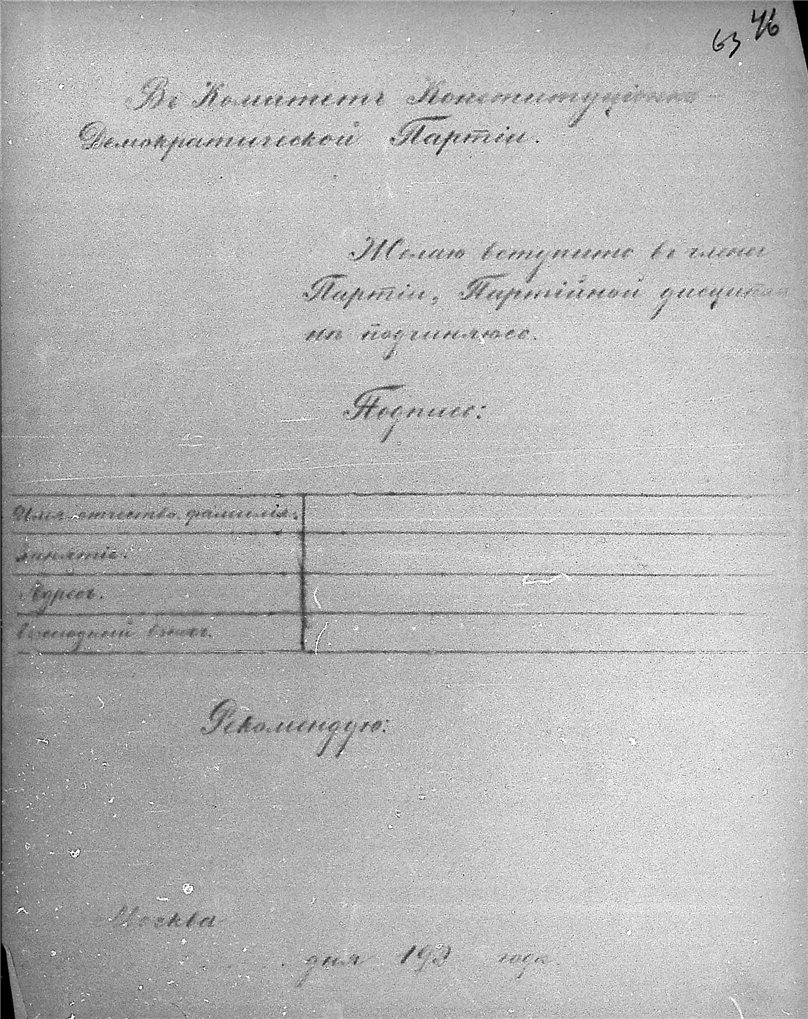 63 46
Въ Комитетъ Конституціонно-
Демократической Партіи.
Желаю вступить въ члены
Партіи, Партійной дисципли
нѣ подчиняюсь.
Подпись:
Имя, отчество, фамилія.
Занятіе.
Адресъ.
взносъ.
Рекомендую:
Москва
дня 190 года.